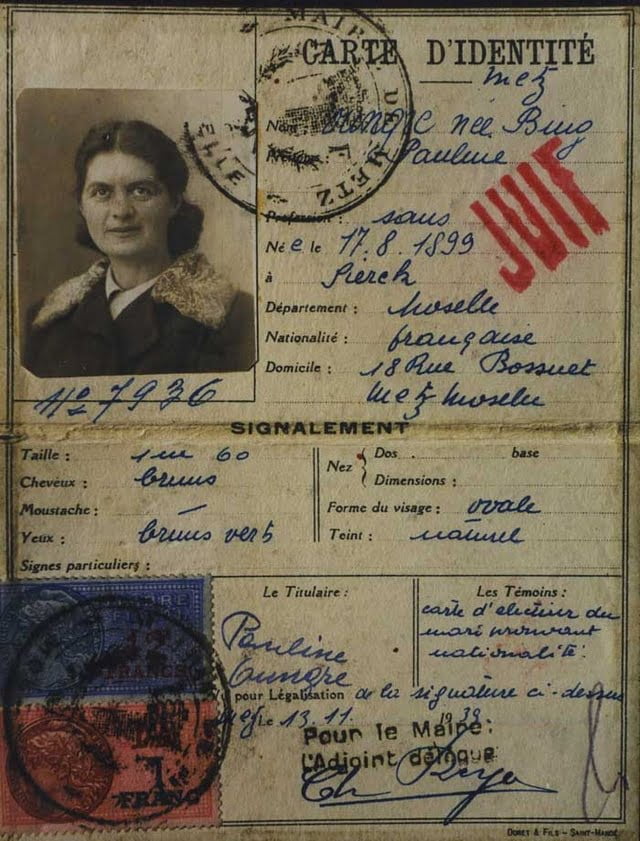 CARTE D'IDENTITÉ
Metz
MAIRIE DE METZ
Nom née Bing
Prénoms : Pauline
JUIF
Profession : sans
Née le 17.8.1899
à Sierck
Département : Moselle
Nationalité : française
Domicile : 18 Rue Bossuet
Metz Moselle
No 7936
SIGNALEMENT
Taille : 1m 60
Cheveux : bruns
Moustache :
Yeux : bruns verts
Signes particuliers :
Nez Dos base
Dimensions :
Forme du visage : ovale
Teint : naturel
Le Titulaire :
Pauline
Les Témoins :
carte d'électeur du
mari prouvant
nationalité.
Vu pour Légalisation de la signature ci-dessus
Metz Le 13.11. 1939
Pour le Maire:
l'Adjoint délégué
12
FRANCS
1
FRANC
DORET & FILS - SAINT-MANDÉ